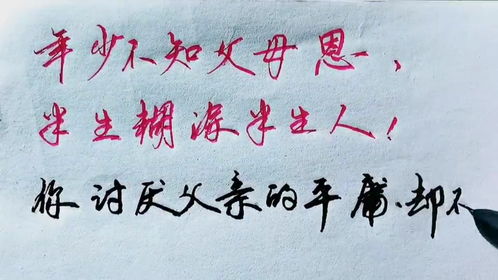 年少不知父母恩、
半生糊涂半生人！
你讨厌父亲的平庸、却不